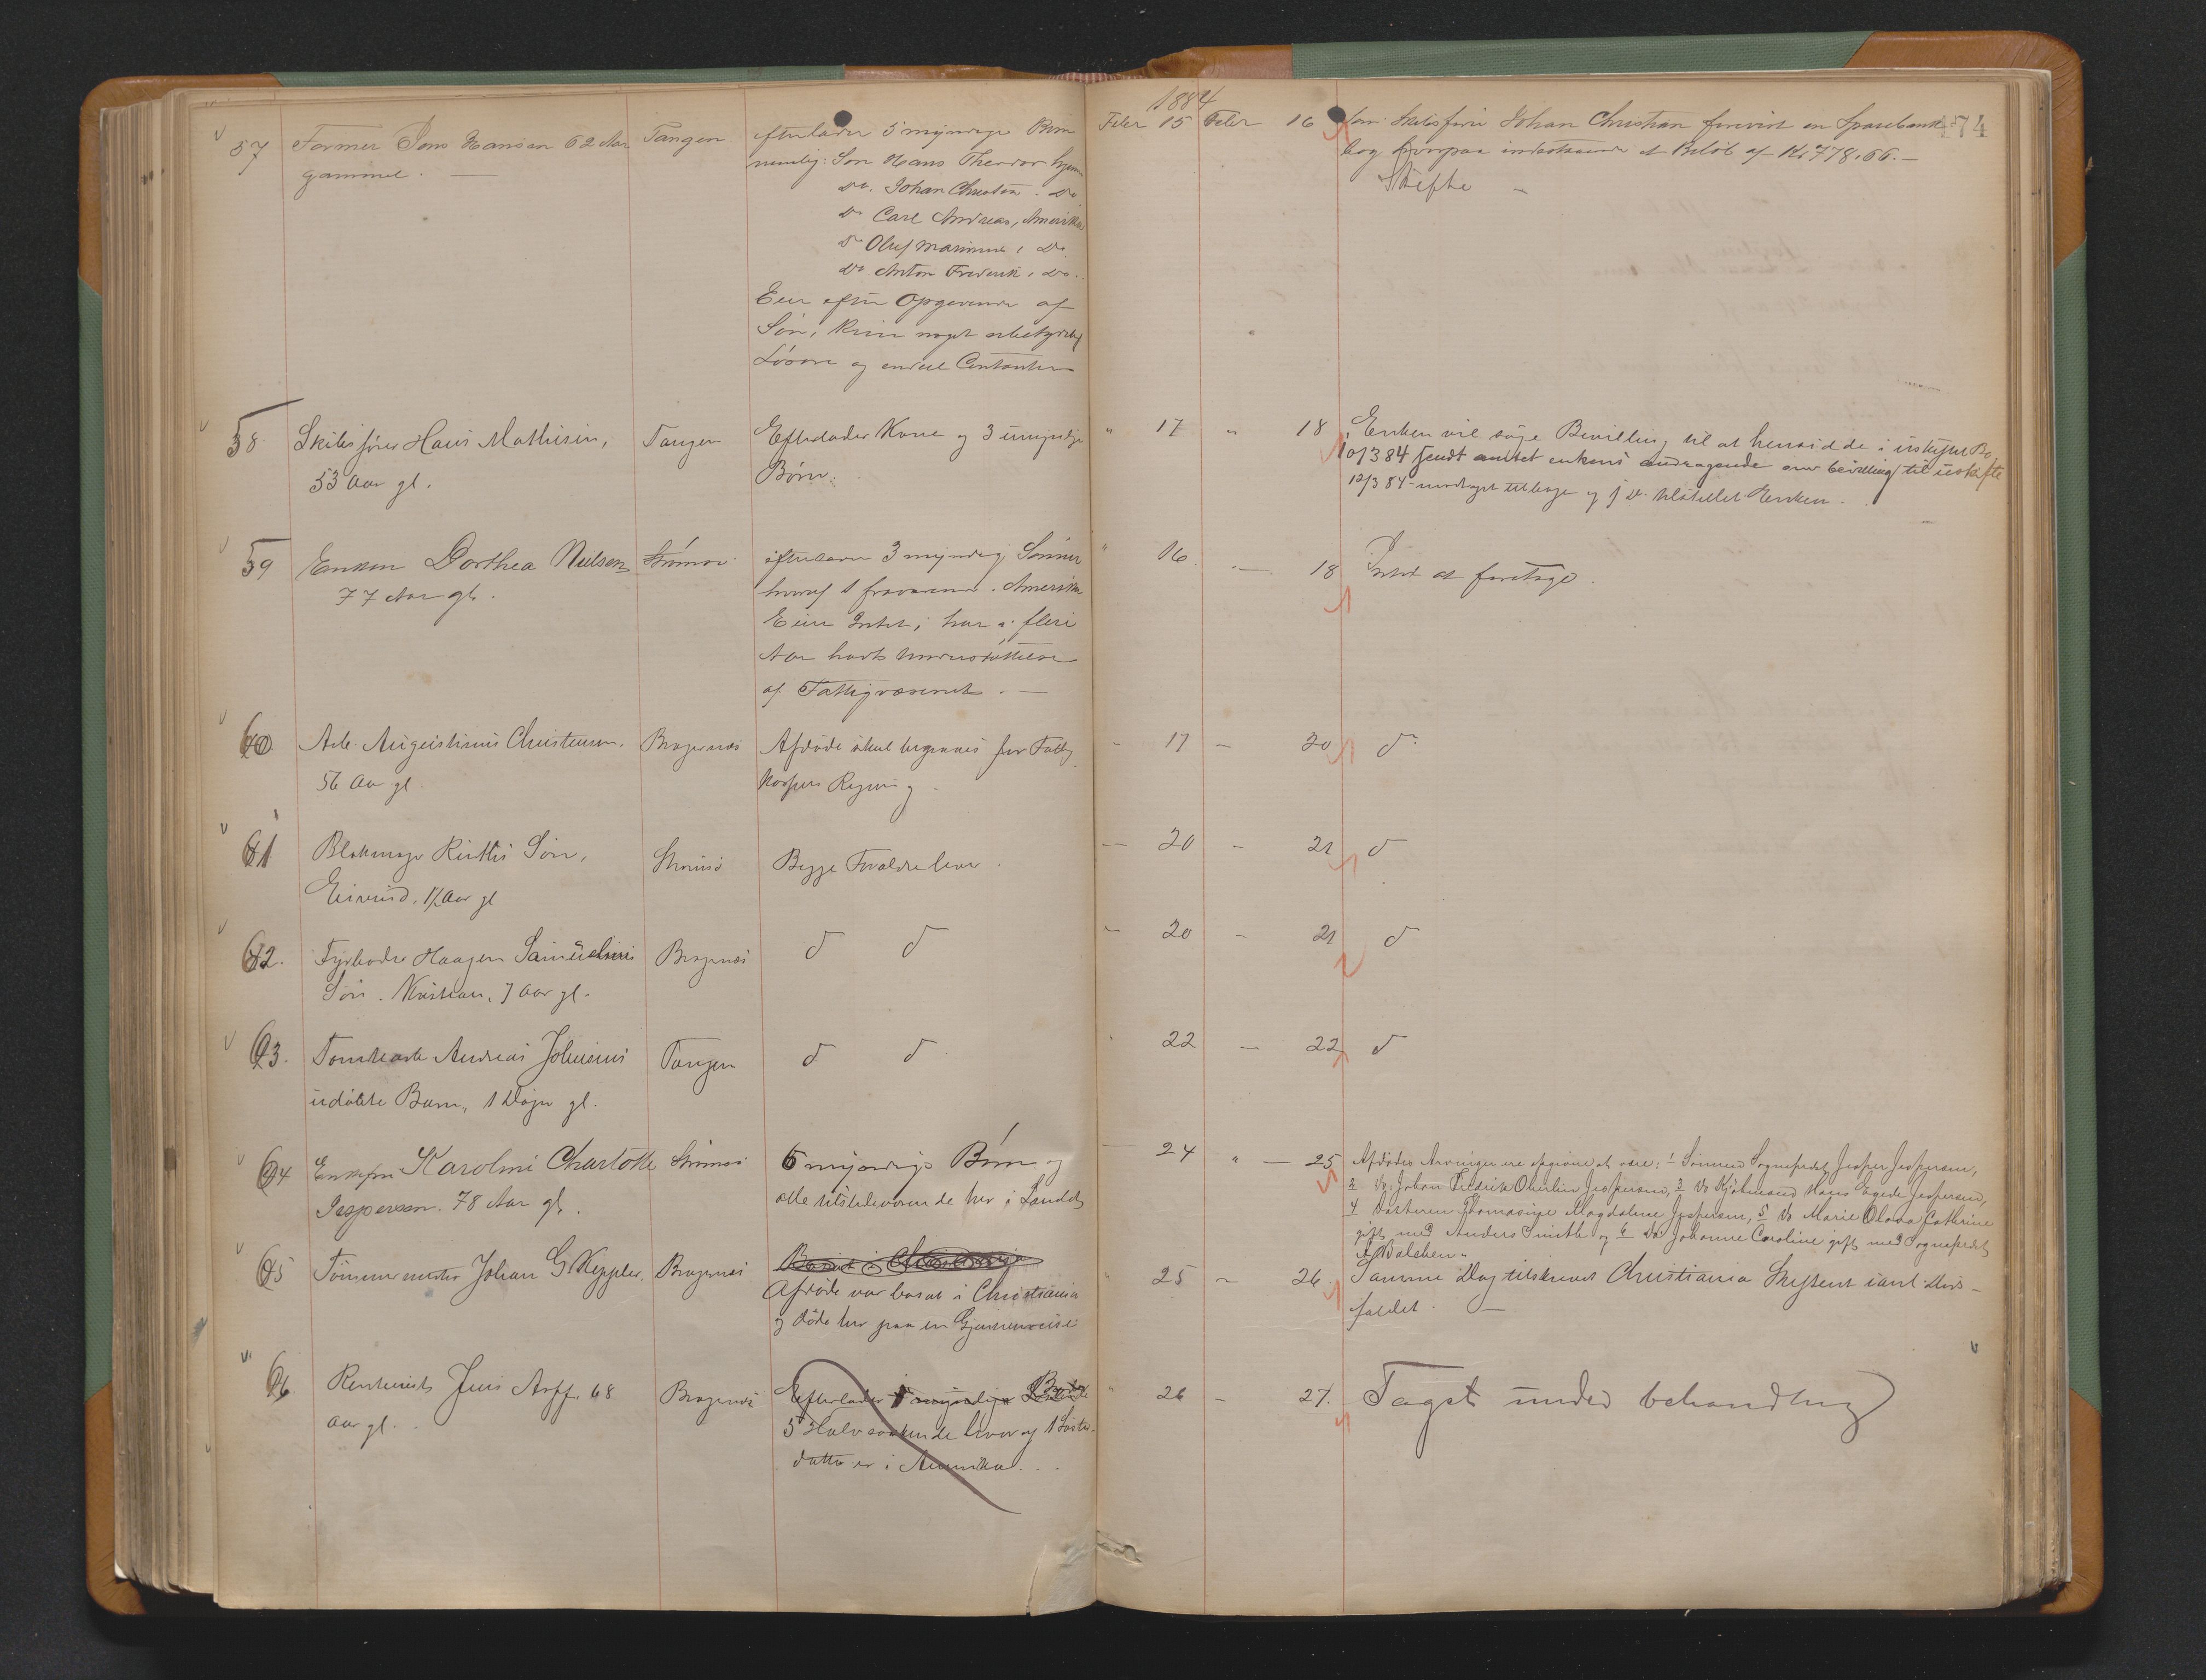 1884
174
57 Former Jens Hansen 62 Aar Tangen efterlader 5 myndige Børn Febr 15 Febr 16 Søn Skibsfører Johan Christian foreviist en Sparebank-
gammel. nemlig: Søn Hans Theodor hjem bog hvorpaa indestaaende et Beløb af Kr 778.66.
Do. Johan Christian. Do Skifte
Do Carl Andreas, Amerika
Do Oluf Marinius, Do.
Do. Anton Frederik, Do.
Eier efter Opgivende af
Søn, kun noget ubetydeligt
Løsøre og endeel Contanter
58 Skibsfører Hans Mathisen, Tangen Efterlader Kone og 3 umyndige " 17 " 18 Enken vil søge Bevilling til at hensidde i uskiftet Bo.
53 Aar gl. Børn. 10/3 84 sendt amtet enkens andragende om bevilling til uskifte
12/3 84 modtaget tilbage og s. D. tilstillet Enken.
59 Enken Dorthea Nielsen Strømsø efterlader 3 myndige Sønner " 16 — 18 Intet at foretage.
77 Aar gl. hvoraf 1 fraværende i Amerika
Eier Intet; har i flere
Aar havt Understøttelse
af Fattigvæsenet. —
60 Arb. Augustinus Christensen. Bragernæs Afdøde skal begraves for Fattig- - 17 - 20 do
56 Aar gl. kassens Regning.
61 Blokmager Søn, Strømsø Begge Forældre lever. — 20 - 21 do
Eivind, 1½ Aar gl
62. Fyrbøder Haagen Samuelsens Bragernæs do do - 20 - 21 do
Søn. Kristian, 7 Aar gl.
63. Tomtearb Andreas Johnsens Tangen do do 22 — 22 do
udøbte Barn, 1 Døgn gl.
64 Enkefru Karoline Charlotte Strømsø 6 myndige Børn og — 24 " — 25 Afdødes Arvinger ere opgivne at være: 1 Sønnen Sogneprest Jesper Jespersen,
Jespersen. 78 Aar gl. alle tilstedeværende her i Landet 2 Do: Johan Fredrik Oberlin Jespersen, 3 Do Kjøbmand Hans Egede Jespersen,
4 Datteren Thomasine Magdalene Jespersen, 5 Do Marie Olava Cathrine
gift med Anders Smith og 6 Do Johanne Caroline gift med Sogneprest
65 Tømmermester Johan G Keppler, Bragernæs Bosat i Christiania " 25 - 26. Samme Dag tilskrevet Christiania Skifteret ianl: Døds-
Afdøde var bosat i Christiania faldet. —
og døde her paa en Gjennemreise
66 Rentenist Jens Arff. 68 Bragernæs Efterlader 1 myndige " 26 - 27. Taget under behandling
Aar gl. 5 Halvsøskende lever og 1 Søster-
datter er i Amerika.